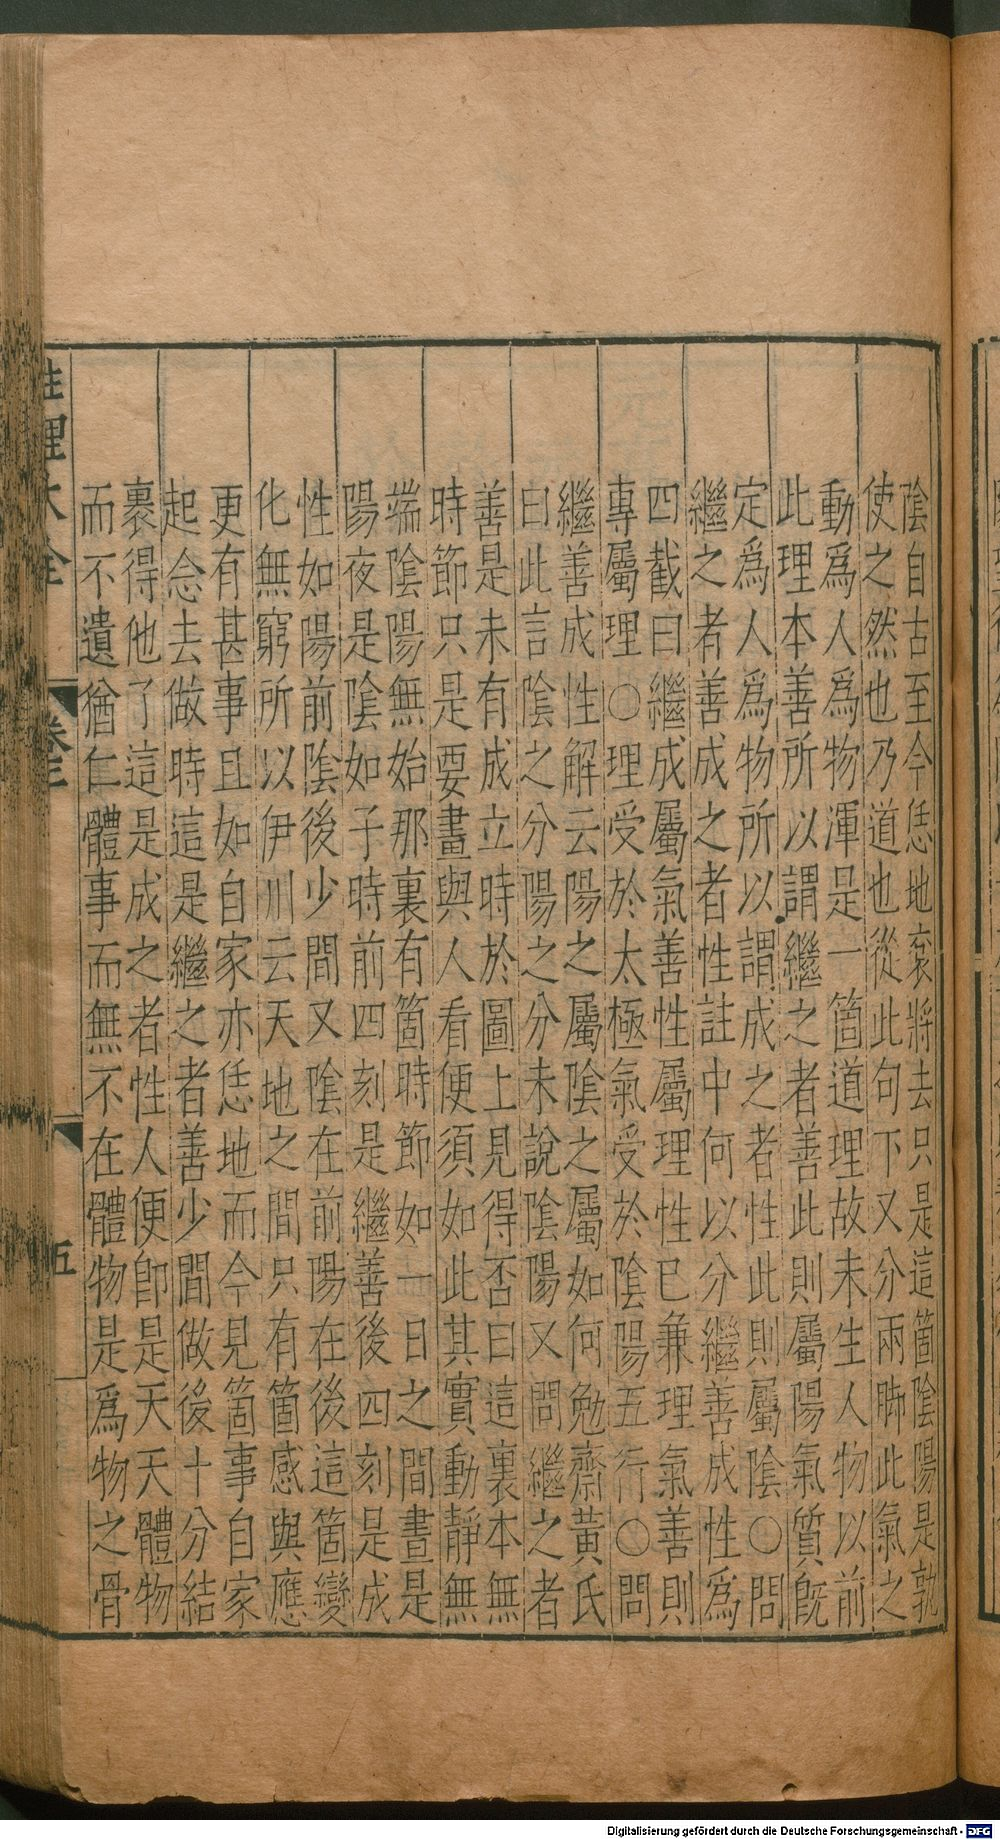 陰自古至今恁地衮將去只是這箇陰陽是孰
使之然也乃道也從此句下又分兩脚此氣之
動爲人爲物渾是一箇道理故未生人物以前
此理本善所以謂繼之者善此則屬陽氣質旣
定爲人爲物所以謂成之者性此則屬陰○問
繼之者善成之者性註中何以分繼善成性爲
四截曰繼成屬氣善性屬理性已兼理氣善則
專屬理○理受於太極氣受於陰陽五行○問
繼善成性解云陽之屬陰之屬如何勉齋黃氏
曰此言陰之分陽之分未說陰陽又問繼之者
善是未有成立時於圖上見得否曰這裏本無
時節只是要畫與人看便須如此其實動靜無
端陰陽無始那裏有箇時節如一日之間晝是
陽夜是陰如子時前四刻是繼善後四刻是成
性如陽前陰後少間又陰在前陽在後這箇變
化無窮所以伊川云天地之間只有箇感與應
更有甚事且如自家亦恁地而今見箇事自家
起念去做時這是繼之者善少間做後十分結
裹得他了這是成之者性人便卽是天天體物
而不遺猶仁體事而無不在體物是爲物之骨
性理大全
卷三
五
Digitalisierung gefördert durch die Deutsche Forschungsgemeinschaft - DFG